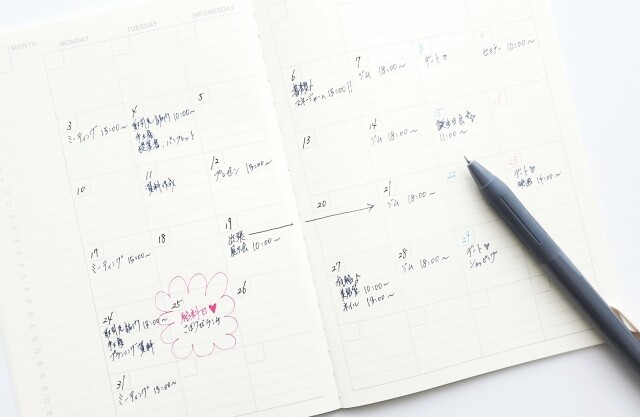 MONTH
MONDAY
TUESDAY
WEDNESDAY
3
ミーティング 15:00〜
4
取引先訪問 10:00〜
手土産
提案書、パンフレット
5
6
7
ジム 18:00〜
8
デート♡
セミナー 10:00〜
10
11
資料作成
12
プレゼン 14:00〜
13
14
ジム 18:00〜
誕生日会☆
11:00〜
17
ミーティング 15:00〜
18
19
出張
10:00〜
20
21
ジム 18:00〜
22
デート♡
映画 14:00〜
24
取引先訪問 13:00〜
手土産
資料
25
給料日♥
ごほうびランチ
26
27
有給♪
美容室 10:00〜
ネイル 14:00〜
28
ジム 18:00〜
29
デート♡
ショッピング
31
ミーティング 15:00〜